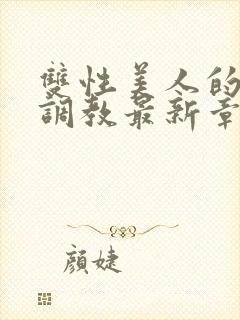 雙性美人的
調教最新章
顏婕